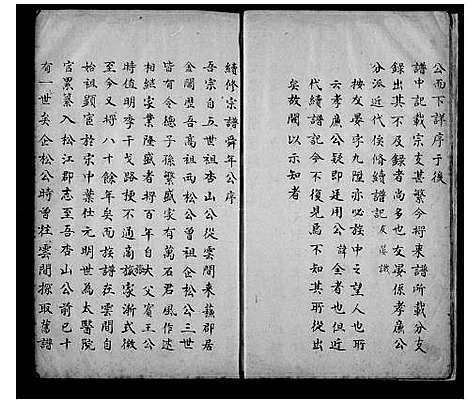 公而下詳序于後
譜中記載宗支甚繁今將東譜所載分支
錄出其不及錄者尚多也友畧係孝廉公
分派近代俟脩續譜記友藩識
按友畧字九陞亦必族中之望人也所
云孝廉公疑即廷用公諱全者也但近
代續譜記今不復見烏不知其所從出
矣故闕以示知者
續修宗譜舜年公序
吾宗自五世祖杏山公從雲間來蘓郡居
金閶歷吾高祖松公曾祖企松公三世
皆有令德子孫繁盛家有萬石君風作述
相繼家業隆盛者將百年自大父賓王公
時值明季干戈路梗不通商族家漸式微
至今又將八十餘年矣而族譜在雲間自
始祖顯宦於宋中葉仕元明世為太醫院
官累纂入松江郡志至吾杏山公前已十
有一世矣企松公時曾往雲間探取舊譜